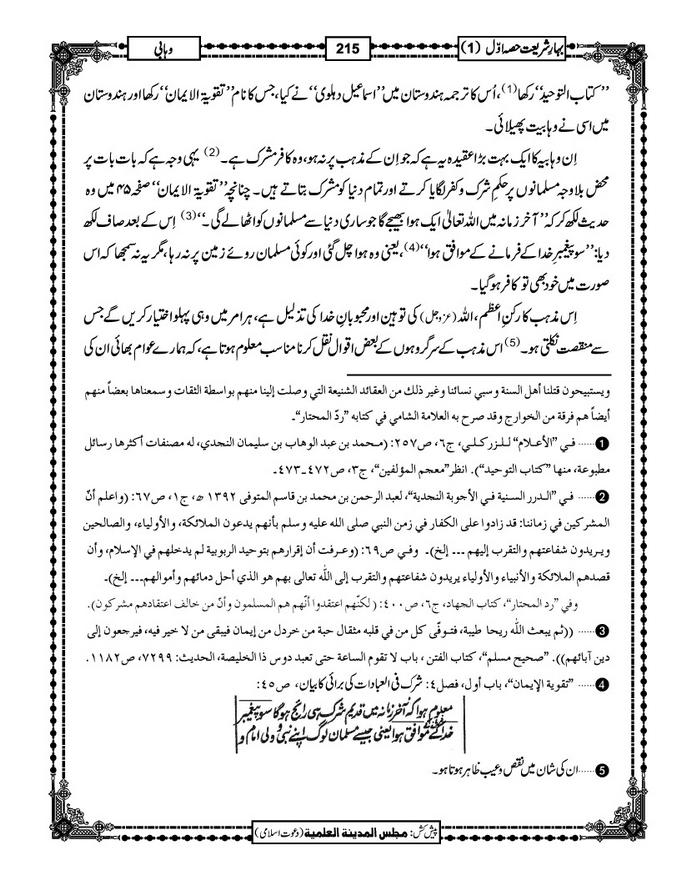 بہارِ شریعت حصہ اوّل (1)
215
وہابی
’’کتاب التوحید‘‘ رکھا(1)، اُس کا ترجمہ ہندوستان میں ’’اسماعیل دہلوی‘‘ نے کیا، جس کا نام ’’تقویۃ الایمان‘‘ رکھا اور ہندوستان
میں اسی نے وہابیت پھیلائی۔
اِن وہابیہ کا ایک بہت بڑا عقیدہ یہ ہے کہ جو اِن کے مذہب پر نہ ہو، وہ کافر مشرک ہے۔(2) یہی وجہ ہے کہ بات بات پر
محض بلاوجہ مسلمانوں پر حکمِ شرک و کفر لگایا کرتے اور تمام دنیا کو مشرک بتاتے ہیں۔ چنانچہ ’’تقویۃ الایمان‘‘ صفحہ ۴۵ میں وہ
حدیث لکھ کر کہ ’’آخر زمانہ میں اللہ تعالیٰ ایک ہوا بھیجے گا جو ساری دنیا سے مسلمانوں کو اٹھا لے گی۔‘‘(3) اِس کے بعد صاف لکھ
دیا: ’’سو پیغمبرِ خدا کے فرمانے کے موافق ہوا‘‘(4)، یعنی وہ ہوا چل گئی اور کوئی مسلمان روئے زمین پر نہ رہا، مگر یہ نہ سمجھا کہ اس
صورت میں خود بھی تو کافر ہو گیا۔
اِس مذہب کا رکنِ اعظم، اللہ (عزوجل) کی توہین اور محبوبانِ خدا کی تذلیل ہے، ہر امر میں وہی پہلو اختیار کریں گے جس
سے منقصت نکلتی ہو۔(5) اس مذہب کے سرگروہوں کے بعض اقوال نقل کرنا مناسب معلوم ہوتا ہے، کہ ہمارے عوام بھائی ان کی
ويستبيحون قتلنا أهل السنة وسبي نسائنا وغير ذلك من العقائد الشنيعة التي وصلت إلينا منهم بواسطة الثقات وسمعناها بعضاً منهم
أيضاً هم فرقة من الخوارج وقد صرح به العلامة الشامي في كتابه ”ردّ المحتار“۔
1 ...... في ”الأعلام“ للزركلي، ج٦، ص٢٥٧: (محمد بن عبد الوهاب بن سليمان النجدي، له مصنفات أكثرها رسائل
مطبوعة، منها ”كتاب التوحيد“). انظر ”معجم المؤلفين“، ج٣، ص٤٧٢۔٤٧٣۔
2 ...... في ”الدرر السنية في الأجوبة النجدية“، لعبد الرحمن بن محمد بن قاسم المتوفى ١٣٩٢ ھ، ج١، ص٦٧: (واعلم أنّ
المشركين في زماننا: قد زادوا على الكفار في زمن النبي صلى الله عليه وسلم بأنهم يدعون الملائكة، والأولياء، والصالحين
ويريدون شفاعتهم والتقرب إليهم ... إلخ)۔ وفي ص٦٩: (وعرفت أن إقرارهم بتوحيد الربوبية لم يدخلهم في الإسلام، وأن
قصدهم الملائكة والأنبياء والأولياء يريدون شفاعتهم والتقرب إلى الله تعالى بهم هو الذي أحل دمائهم وأموالهم... إلخ)۔
وفي ”رد المحتار“، كتاب الجهاد، ج٦، ص٤٠٠: (لكنّهم اعتقدوا أنّهم هم المسلمون وأنّ من خالف اعتقادهم مشركون).
3 ...... ((ثم يبعث الله ريحا طيبة، فتوفّى كل من في قلبه مثقال حبة من خردل من إيمان فيبقى من لا خير فيه، فيرجعون إلى
دين آبائهم)). ”صحيح مسلم“، كتاب الفتن، باب لا تقوم الساعة حتى تعبد دوس ذا الخليصة، الحديث: ٧٢٩٩، ص١١٨٢.
4 ...... ”تقوية الإيمان“، باب أول، فصل٤: شرک فی العبادات کی برائی کا بیان، ص٤٥:
معلوم ہوا کہ آخر زمانہ میں قدیم شرک بھی رائج ہوگا سو پیغمبر
خدا کے موافق ہوا یعنی جیسے مسلمان لوگ اپنے نبی و ولی امام و
5 ...... ان کی شان میں نقص و عیب ظاہر ہوتا ہو۔
پیش کش: مجلس المدينة العلمية (دعوت اسلامی)